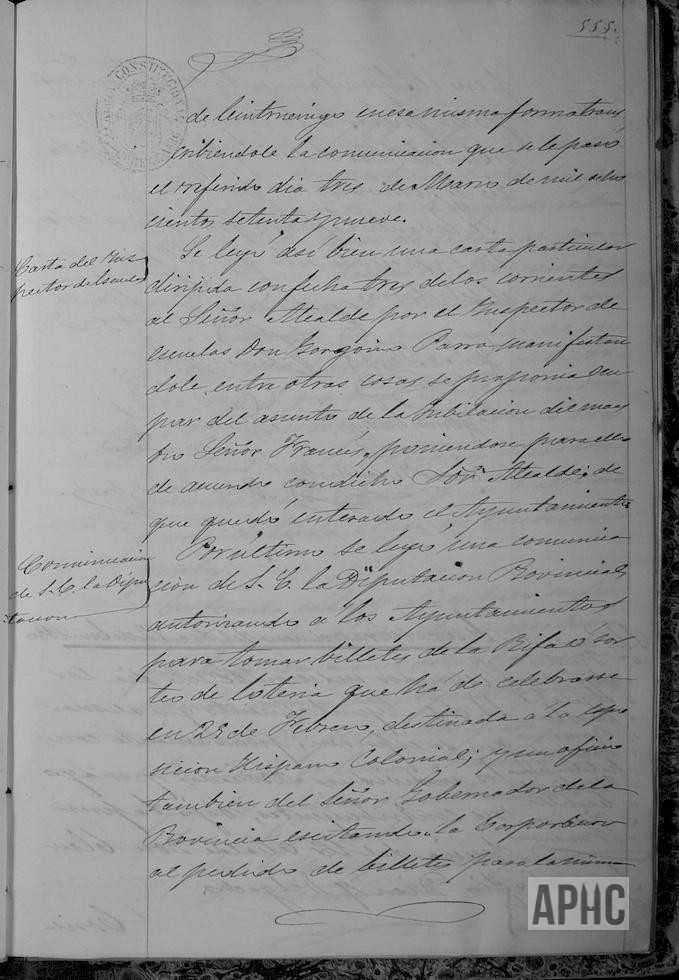 555.
de Ceintruenigo en esa misma forma trans
cribiendole la comunicacion que se le pasó
el referido dia tres de Marzo de mil ocho
cientos setenta y nueve.
Carta del Ins
pector de Escuelas
Se leyó asi bien una carta particular
dirijida con fecha tres de los corrientes
al Señor Alcalde por el Inspector de
escuelas Don Gorgonio Parra manifestan
dole entre otras cosas se proponia ocu
par del asunto de la Jubilacion del maes
tro Señor Francés, poniendose para ello
de acuerdo con dicho Sör. Alcalde; de
que quedó enterado el Ayuntamiento
Comunicacion
de S. E. la Dipu
tacion
Por último se leyó una comunica
cion de S. E. la Diputacion Provincial
autorizando á los Ayuntamientos
para tomar billetes de la Rifa ó sor
teo de loteria que há de celebrarse
en 25 de Febrero, destinada á la espo
sicion Hispano Colonial; y un oficio
tambien del Señor Gobernador de la
Provincia escitando la Corporacion
al pedido de billetes para la misma
APHC